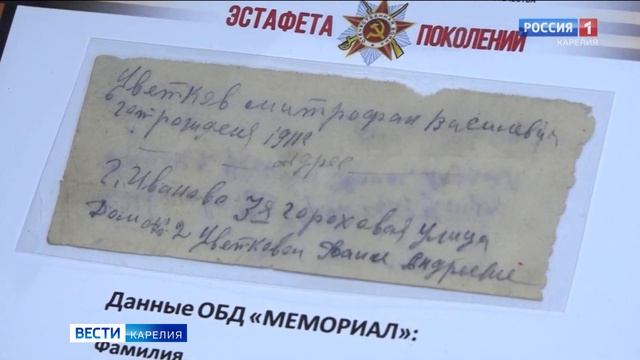 ЭСТАФЕТА ПОКОЛЕНИЙ
РОССИЯ 1
КАРЕЛИЯ
Цветков митрофан Василевич
год рождения 1911г
адрес
г. Иваново 3я гороховая улица
Дом № 2 Цветковой Андреевне
Данные ОБД «МЕМОРИАЛ»:
Фамилия
ВЕСТИ КАРЕЛИЯ